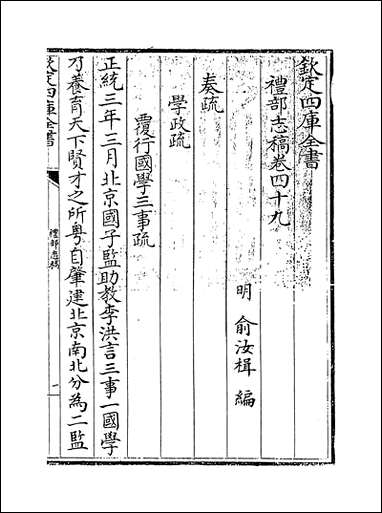 欽定四庫全書
禮部志稿卷四十九
明 俞汝楫 編
奏疏
學政疏
覆行國學三事疏
正統三年三月北京國子監助教李洪言三事一國學
乃養育天下賢才之所粵自肇建北京南北分為二監
欽定四庫全書
禮部志稿
一